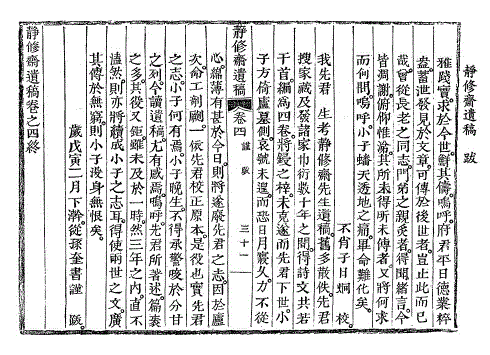 靜修齋遺稿 跋
雅踐實求於今世鮮其儔嗚呼府君平日德業粹
盎蓄泄發見於文章可傳於後世者豈止此而已
哉曾從長老之同志門弟之親炙者得聞緒言今
皆凋謝俯仰惟翁其所未得所未傳者又將何求
而何問嗚呼小子蟠天透地之痛畢命難化矣
不肖子日炯 校
我先君 生考靜修齋先生遺稿舊多散佚先君
搜家藏及發諸家巾衍數十年之間得詩文共若
干首編爲四卷將鋟之梓未克遂而先君下世小
子方倚廬墓側哀號未遑而恐日月寖久方不從
靜修齋遺稿 卷四 謹跋 三十一
心薀薄有甚於今日則將遂廢先君之志因於廬
次命工剞劂一依先君校正原本是役也實先君
之志小子何有焉小子晩生不得承警咳於分甘
之列今讀遺稿尤有感焉嗚呼先君所著述篇袠
之多其役又鉅雖未及於一時然三年之內直不
溘然則亦將續成小子之志耳得使兩世之文廣
其傳於無窮則小子沒身無恨矣
歲戊寅二月下澣從孫奎書謹 跋
靜修齋遺稿卷之四終